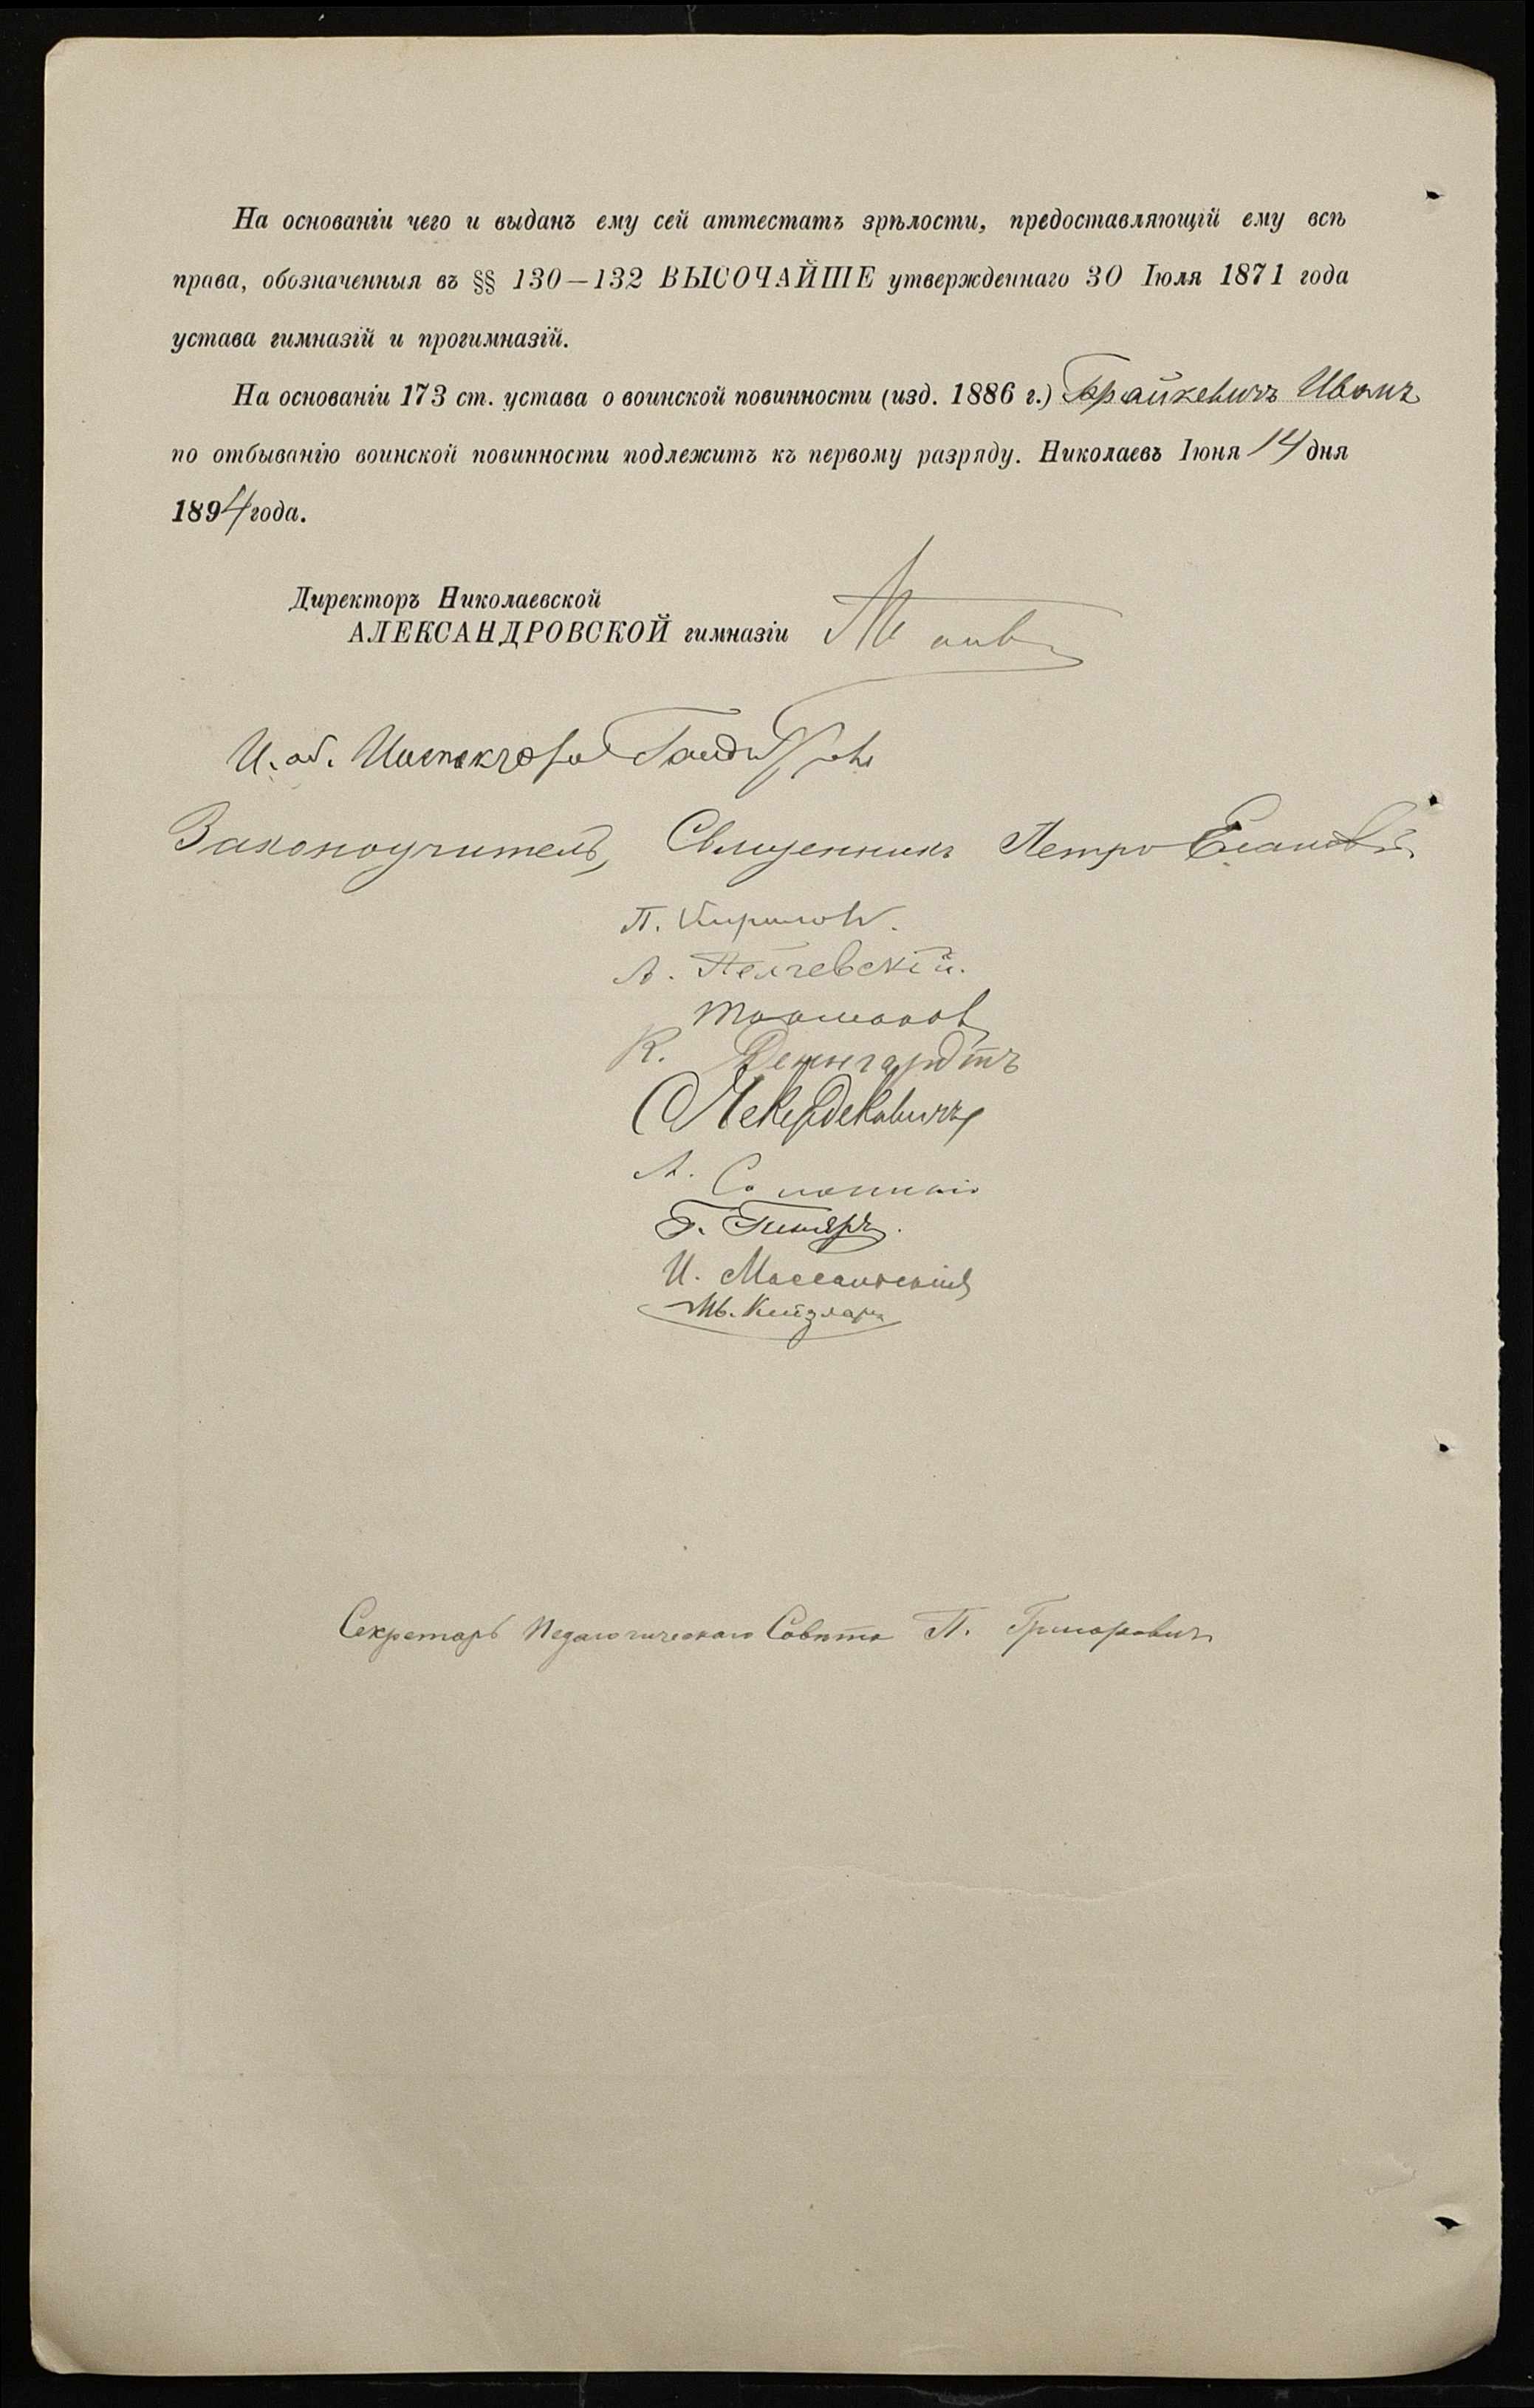 На основаніи чего и выданъ ему сей аттестатъ зрѣлости, предоставляющій ему всѣ
права, обозначенныя въ §§ 130—132 ВЫСОЧАЙШЕ утвержденнаго 30 Іюля 1871 года
устава гимназій и прогимназій.
На основаніи 173 ст. устава о воинской повинности (изд. 1886 г.) Брайкевичъ Иванъ
по отбыванію воинской повинности подлежитъ къ первому разряду. Николаевъ Іюня 14 дня
1894 года.
Директоръ Николаевской
АЛЕКСАНДРОВСКОЙ гимназіи
И. об. Инспектора
Законоучитель, Священникъ Петръ
П. Кириловъ.
А.
К.
А.
Г. Гиляръ.
И.
Ив. Кейзларъ
Секретарь Педагогическаго Совѣта П. Григоровичъ